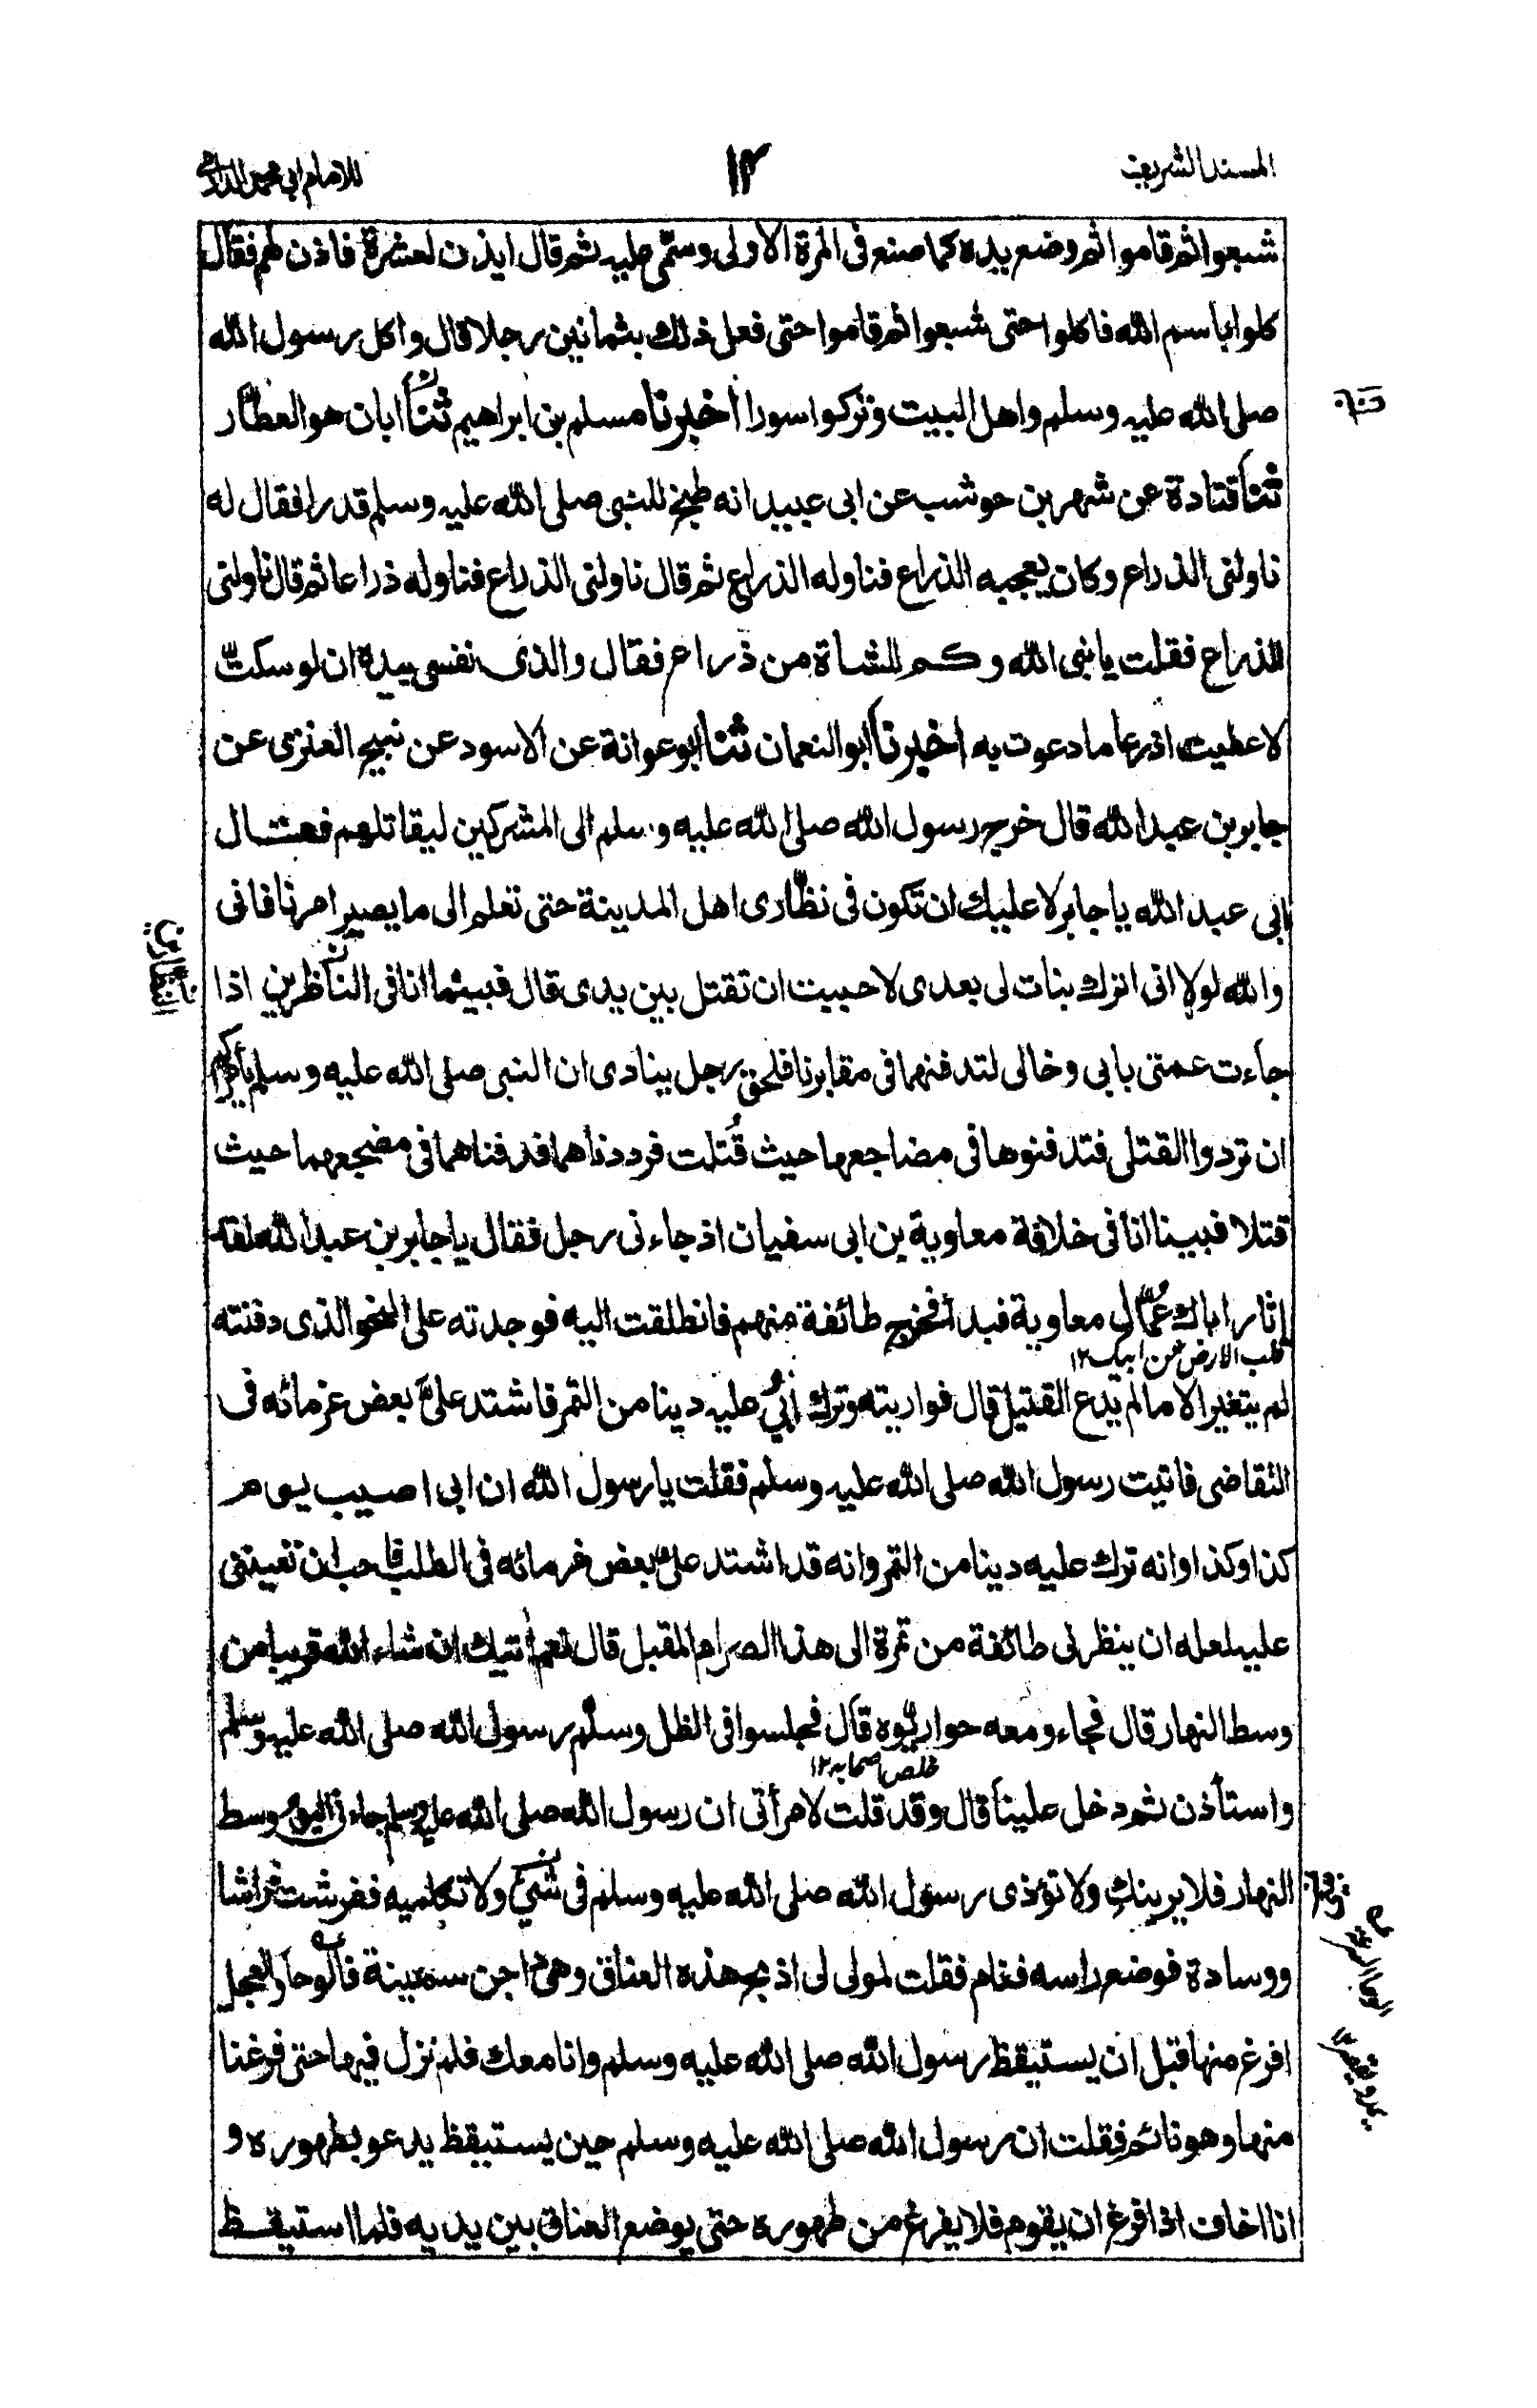 المسند الشريف
١٢
للامام ابي محمد الدارمي
شبعوا ثم قاموا ثم وضع يده كما صنع في المرة الاولى وسمّى عليه ثم قال ايذن لعشرة فاذن لهم فقال
كلوا باسم الله فاكلوا حتى شبعوا ثم قاموا حتى فعل ذلك بثمانين رجلا قال واكل رسول الله
صلى الله عليه وسلم واهل البيت وتركوا سورا اخبرنا مسلم بن ابراهيم ثنا ابان هو العطّار
ثنا قتادة عن شهر بن حوشب عن ابى عبيد انه طبخ للنبى صلى الله عليه وسلم قدرا فقال له
ناولنى الذراع وكان يعجبه الذراع فناوله الذراع ثم قال ناولنى الذراع فناوله ذراعا ثم قال ناولنى
الذراع فقلت يا نبى الله وكم للشاة من ذراع فقال والذى نفسى بيده ان لو سكتّ
لاعطيت اذرعا ما دعوت به اخبرنا ابو النعمان ثنا ابو عوانة عن الاسود عن نبيح العنزى عن
جابر بن عبد الله قال خرج رسول الله صلى الله عليه وسلم الى المشركين ليقاتلهم فقال
ابى عبد الله يا جابر لا عليك ان تكون فى نظّارى اهل المدينة حتى تعلم الى ما يصير امرنا فانى
والله لولا انى اترك بنات لى بعدى لاحببت ان تقتل بين يدى قال فبينما انا فى الناظرين اذا
جاءت عمتى بابى وخالى لتدفنهما فى مقابرنا فلحق رجل ينادى ان النبى صلى الله عليه وسلم يأمركم
ان تردوا القتلى فتدفنوها فى مضاجعها حيث قُتلت فرددناهما فدفناهما فى مضجعهما حيث
قتلا فبينا انا فى خلافة معاوية بن ابى سفيان اذ جاءنى رجل فقال يا جابر بن عبد الله لقد
اثار اباك عُمّال معاوية فبدا فخرج طائفة منهم فانطلقت اليه فوجدته على النحو الذى دفنته
قلب الارض عن ابيك ١٢
لم يتغير الا ما لم يدع القتيل قال فواريته وترك ابى عليه دينا من التمر فاشتد علىّ بعض غرمائه فى
التقاضى فاتيت رسول الله صلى الله عليه وسلم فقلت يا رسول الله ان ابى اصيب يوم
كذا وكذا وانه ترك عليه دينا من التمر وانه قد اشتد علىّ بعض غرمائه فى الطلب فاحب ان تعيننى
عليه لعله ان ينظرنى طائفة من تمرة الى هذا الصرام المقبل قال نعم اتيك ان شاء الله قريبا من
وسط النهار قال فجاء ومعه حواريّوه قال فجلسوا فى الظل وسلّم رسول الله صلى الله عليه وسلم
خلص اصحابه ١٢
واستأذن ثم دخل علينا قال وقد قلت لامرأتى ان رسول الله صلى الله عليه وسلم جاءنى اليوم وسط
النهار فلا يرينك ولا تؤذى رسول الله صلى الله عليه وسلم فى شئ ولا تكلميه ففرشت فراشا
ووسادة فوضع راسه فنام فقلت لمولى لى اذبح هذه العناق وهى داجن سمينة فالوحا والعجل
افرغ منها قبل ان يستيقظ رسول الله صلى الله عليه وسلم وانا معك فلم نزل فيها حتى فرغنا
منها وهو نائم فقلت ان رسول الله صلى الله عليه وسلم حين يستيقظ يدعو بطهوره و
انا اخاف اذا فرغ ان يقوم فلا يفرغ من طهوره حتى يوضع العناق بين يديه فلما استيقظ